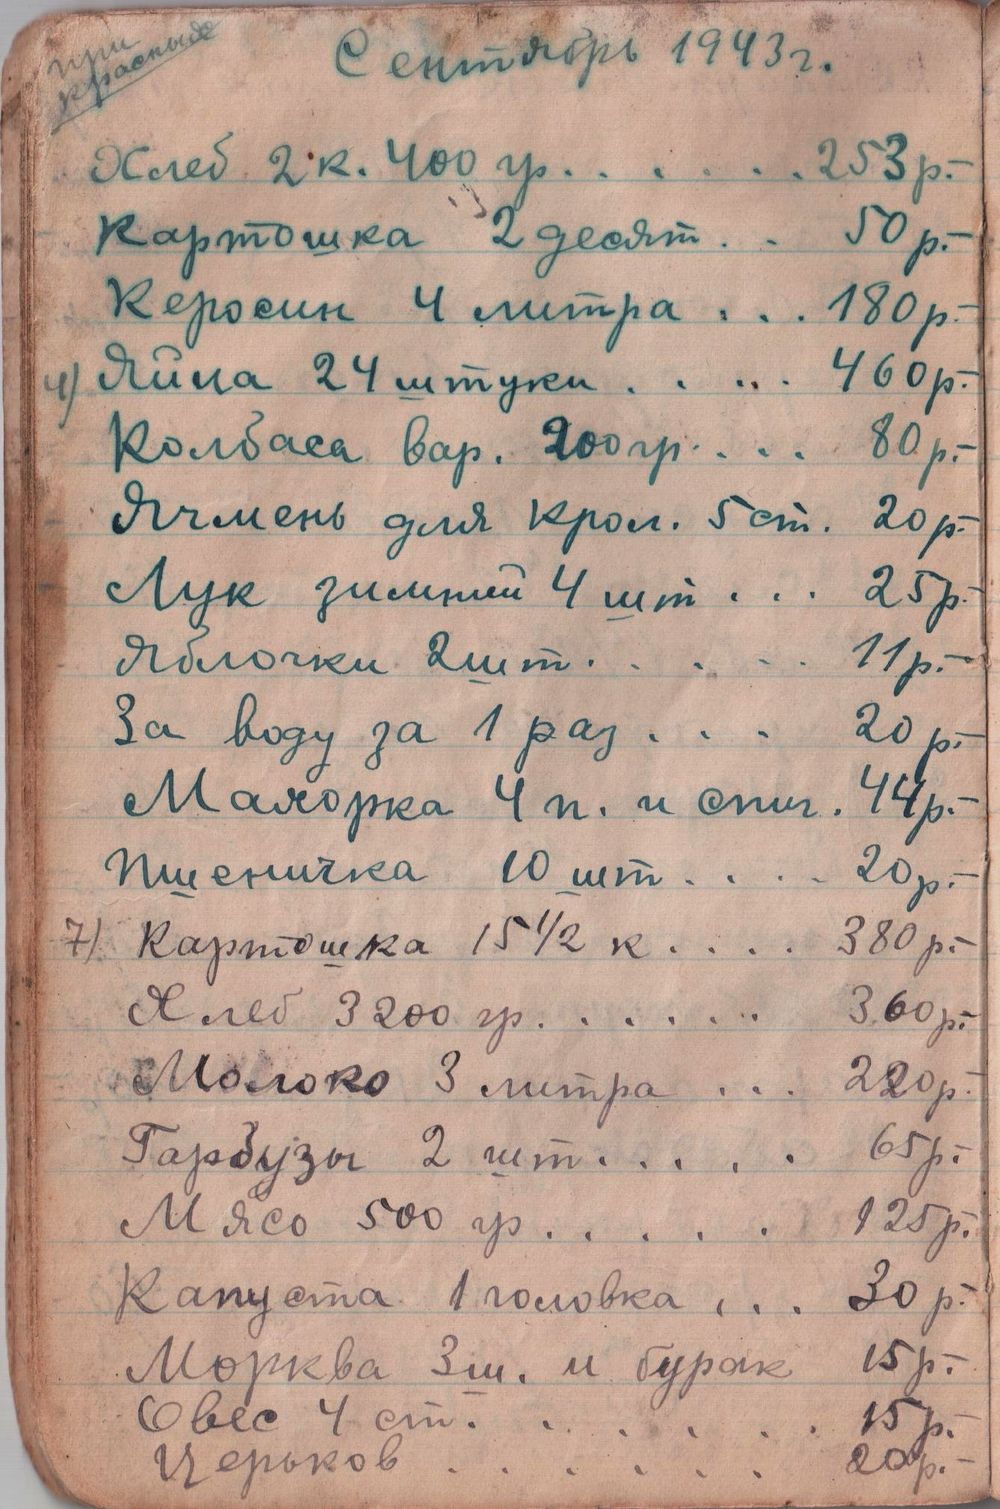 при
красные
Сентябрь 1943г.
Хлеб 2 к. 400 гр. . . . . . . 253р.-
Картошка 2 десят. . . 50р.-
Керосин 4 литра . . . 180р.-
4) Яйца 24 штуки . . . . . 460р.-
Колбаса вар. 200гр. . . . 80р.-
Ячмень для крол. 5 ст. 20р.-
Лук зимний 4 шт . . . 25р.-
Яблочки 2шт. . . . . . 11р.-
За воду за 1 раз . . . 20р.-
Махорка 4 п. и спич. 44р.-
Пшеничка 10 шт. . . . 20р.-
7) Картошка 15 1/2 к. . . . 380р.-
Хлеб 3200 гр. . . . . . . 360р.-
Молоко 3 литра . . . 220р.
Гарбузы 2 шт. . . . . 65р.-
Мясо 500 гр. . . . . 125р.-
Капуста 1 головка . . . 30р.-
Морква 3ш. и бурак 15р.-
Овес 4 ст. . . . . . . 15р.-
Церьков . . . . . . 20р.-